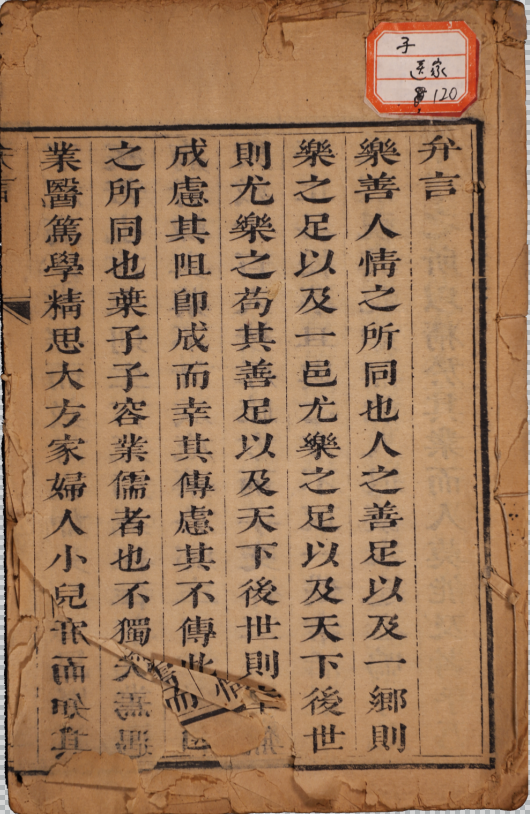 子
医家
120
弁言
樂善人情之所同也人之善足以及一鄉則
樂之足以及一邑尤樂之足以及天下後世
則尤樂之苟其善足以及天下後世則
成慮其阻卽成而幸其傳慮其不傳此
之所同也葉子子容業儒者也不獨
業醫篤學精思大方家婦人小兒